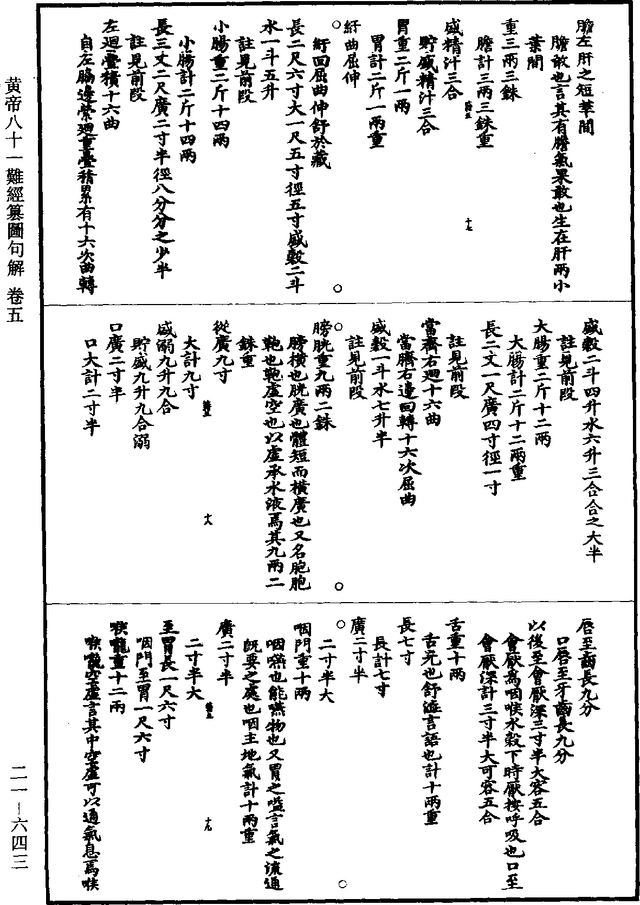 黄帝八十一難經纂圖句解 卷五
二一—六四三
膽左肝之短葉間
膽敢也言其有膽氣果敢也生在肝兩小
葉間
重三兩三銖
膽計三兩三銖重
盛精汁三合
貯盛精汁三合
十七
胃重二斤一兩
胃計二斤一兩重
紆曲屈伸
紆回屈曲伸舒於藏
長二尺六寸大一尺五寸徑五寸盛穀二斗
水一斗五升
註見前段
小腸重二斤十四兩
小腸計二斤十四兩
長三丈二尺廣二寸半徑八分分之少半
註見前段
左廻疊積十六曲
自左脇邊縈廻重疊積累有十六次曲轉
盛穀二斗四升水六升三合合之大半
註見前段
大腸重二斤十二兩
大腸計二斤十二兩重
長二丈一尺廣四寸徑一寸
註見前段
當臍右廻十六曲
當臍右邊回轉十六次屈曲
盛穀一斗水七升半
註見前段
膀胱重九兩二銖
膀橫也胱廣也體短而橫廣也又名胞胞
鞄也鞄虛空也以虛承水液焉其九兩二
銖重
從廣九寸
大計九寸
盛溺九升九合
十八
貯盛九升九合溺
口廣二寸半
口大計二寸半
唇至齒長九分
口唇至牙齒長九分
以後至會厭深三寸半大容五合
會厭為咽喉水穀下時厭按呼吸也口至
會厭深計三寸半大可容五合
舌重十兩
舌充也舒溢言語也計十兩重
長七寸
長計七寸
廣二寸半
二寸半大
咽門重十兩
咽嚥也能嚥物也又胃之嗌言氣之流通
既要之處也咽主地氣計十兩重
廣二寸半
十九
二寸半大
至胃長一尺六寸
咽門至胃一尺六寸
喉嚨重十二兩
喉嚨空虛言其中空虛可以通氣息焉喉